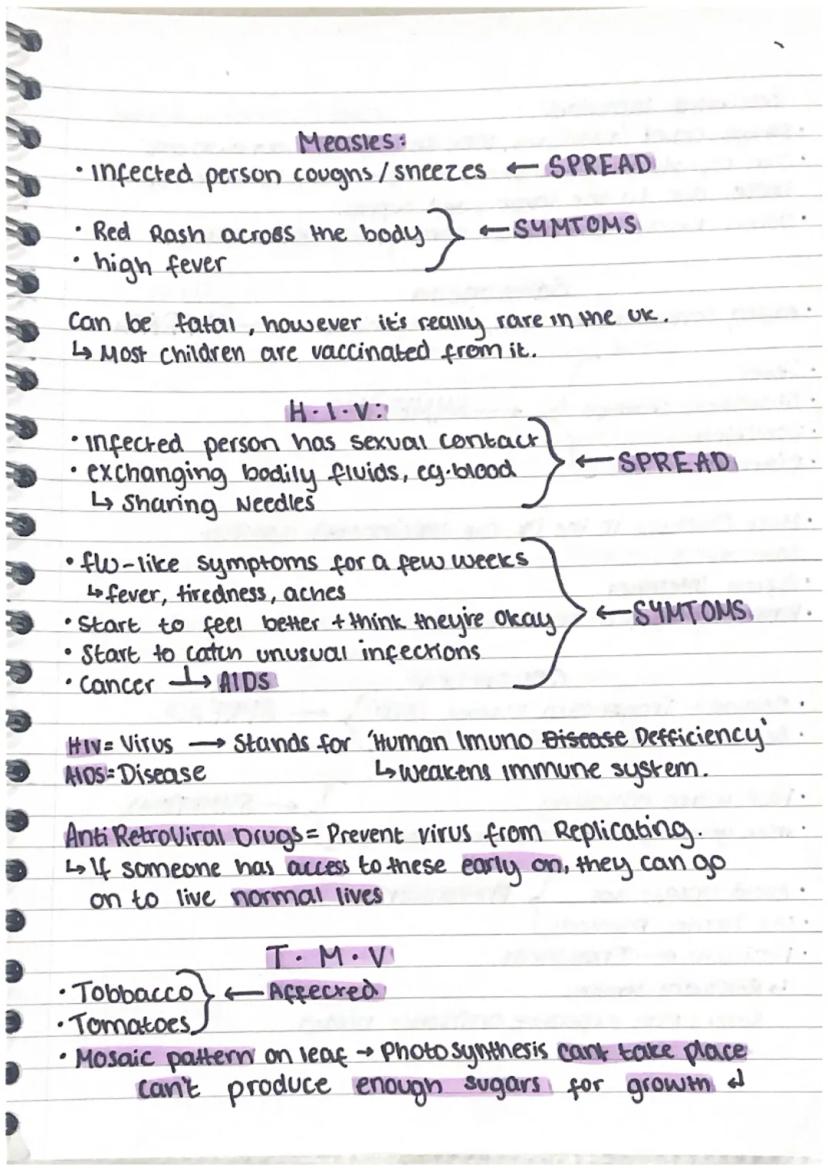 Measles:
• Infected person coughs/sneezes ← SPREAD
• Red Rash across the body ← SYMTOMS
• high fever
Can be fatal, however it's really rare in the UK.
↳ Most children are vaccinated from it.
H.I.V:
• Infected person has sexual contact
• exchanging bodily fluids, eg. blood ← SPREAD
↳ Sharing Needles
• flu-like symptoms for a few weeks
↳ fever, tiredness, aches
• Start to feel better + think they're okay ← SYMTOMS
• Start to catch unusual infections
• Cancer ↳ AIDS
HIV = Virus → Stands for 'Human Imuno Disease Defficiency'
AIDS = Disease ↳ weakens immune system.
Anti RetroViral Drugs = Prevent virus from Replicating.
↳ If someone has access to these early on, they can go
on to live normal lives
T. M. V
• Tobbacco ← Affected
• Tomatoes
• Mosaic pattern on leaf → Photosynthesis cant take place
can't produce enough sugars for growth ↲